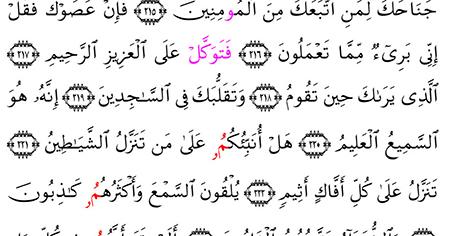 جَنَاحَكَ لِمَنِ ٱتَّبَعَكَ مِنَ ٱلْمُومِنِينَ ٢١٥ فَإِنْ عَصَوْكَ فَقُلْ
إِنِّى بَرِىٓءٌ مِّمَّا تَعْمَلُونَ ٢١٦ فَتَوَكَّلْ عَلَى ٱلْعَزِيزِ ٱلرَّحِيمِ ٢١٧
ٱلَّذِى يَرَىٰكَ حِينَ تَقُومُ ٢١٨ وَتَقَلُّبَكَ فِى ٱلسَّـٰجِدِينَ ٢١٩ إِنَّهُۥ هُوَ
ٱلسَّمِيعُ ٱلْعَلِيمُ ٢٢٠ هَلْ أُنَبِّئُكُمُۥ عَلَىٰ مَن تَنَزَّلُ ٱلشَّيَـٰطِينُ ٢٢١
تَنَزَّلُ عَلَىٰ كُلِّ أَفَّاكٍ أَثِيمٍ ٢٢٢ يُلْقُونَ ٱلسَّمْعَ وَأَكْثَرُهُمُۥ كَـٰذِبُونَ